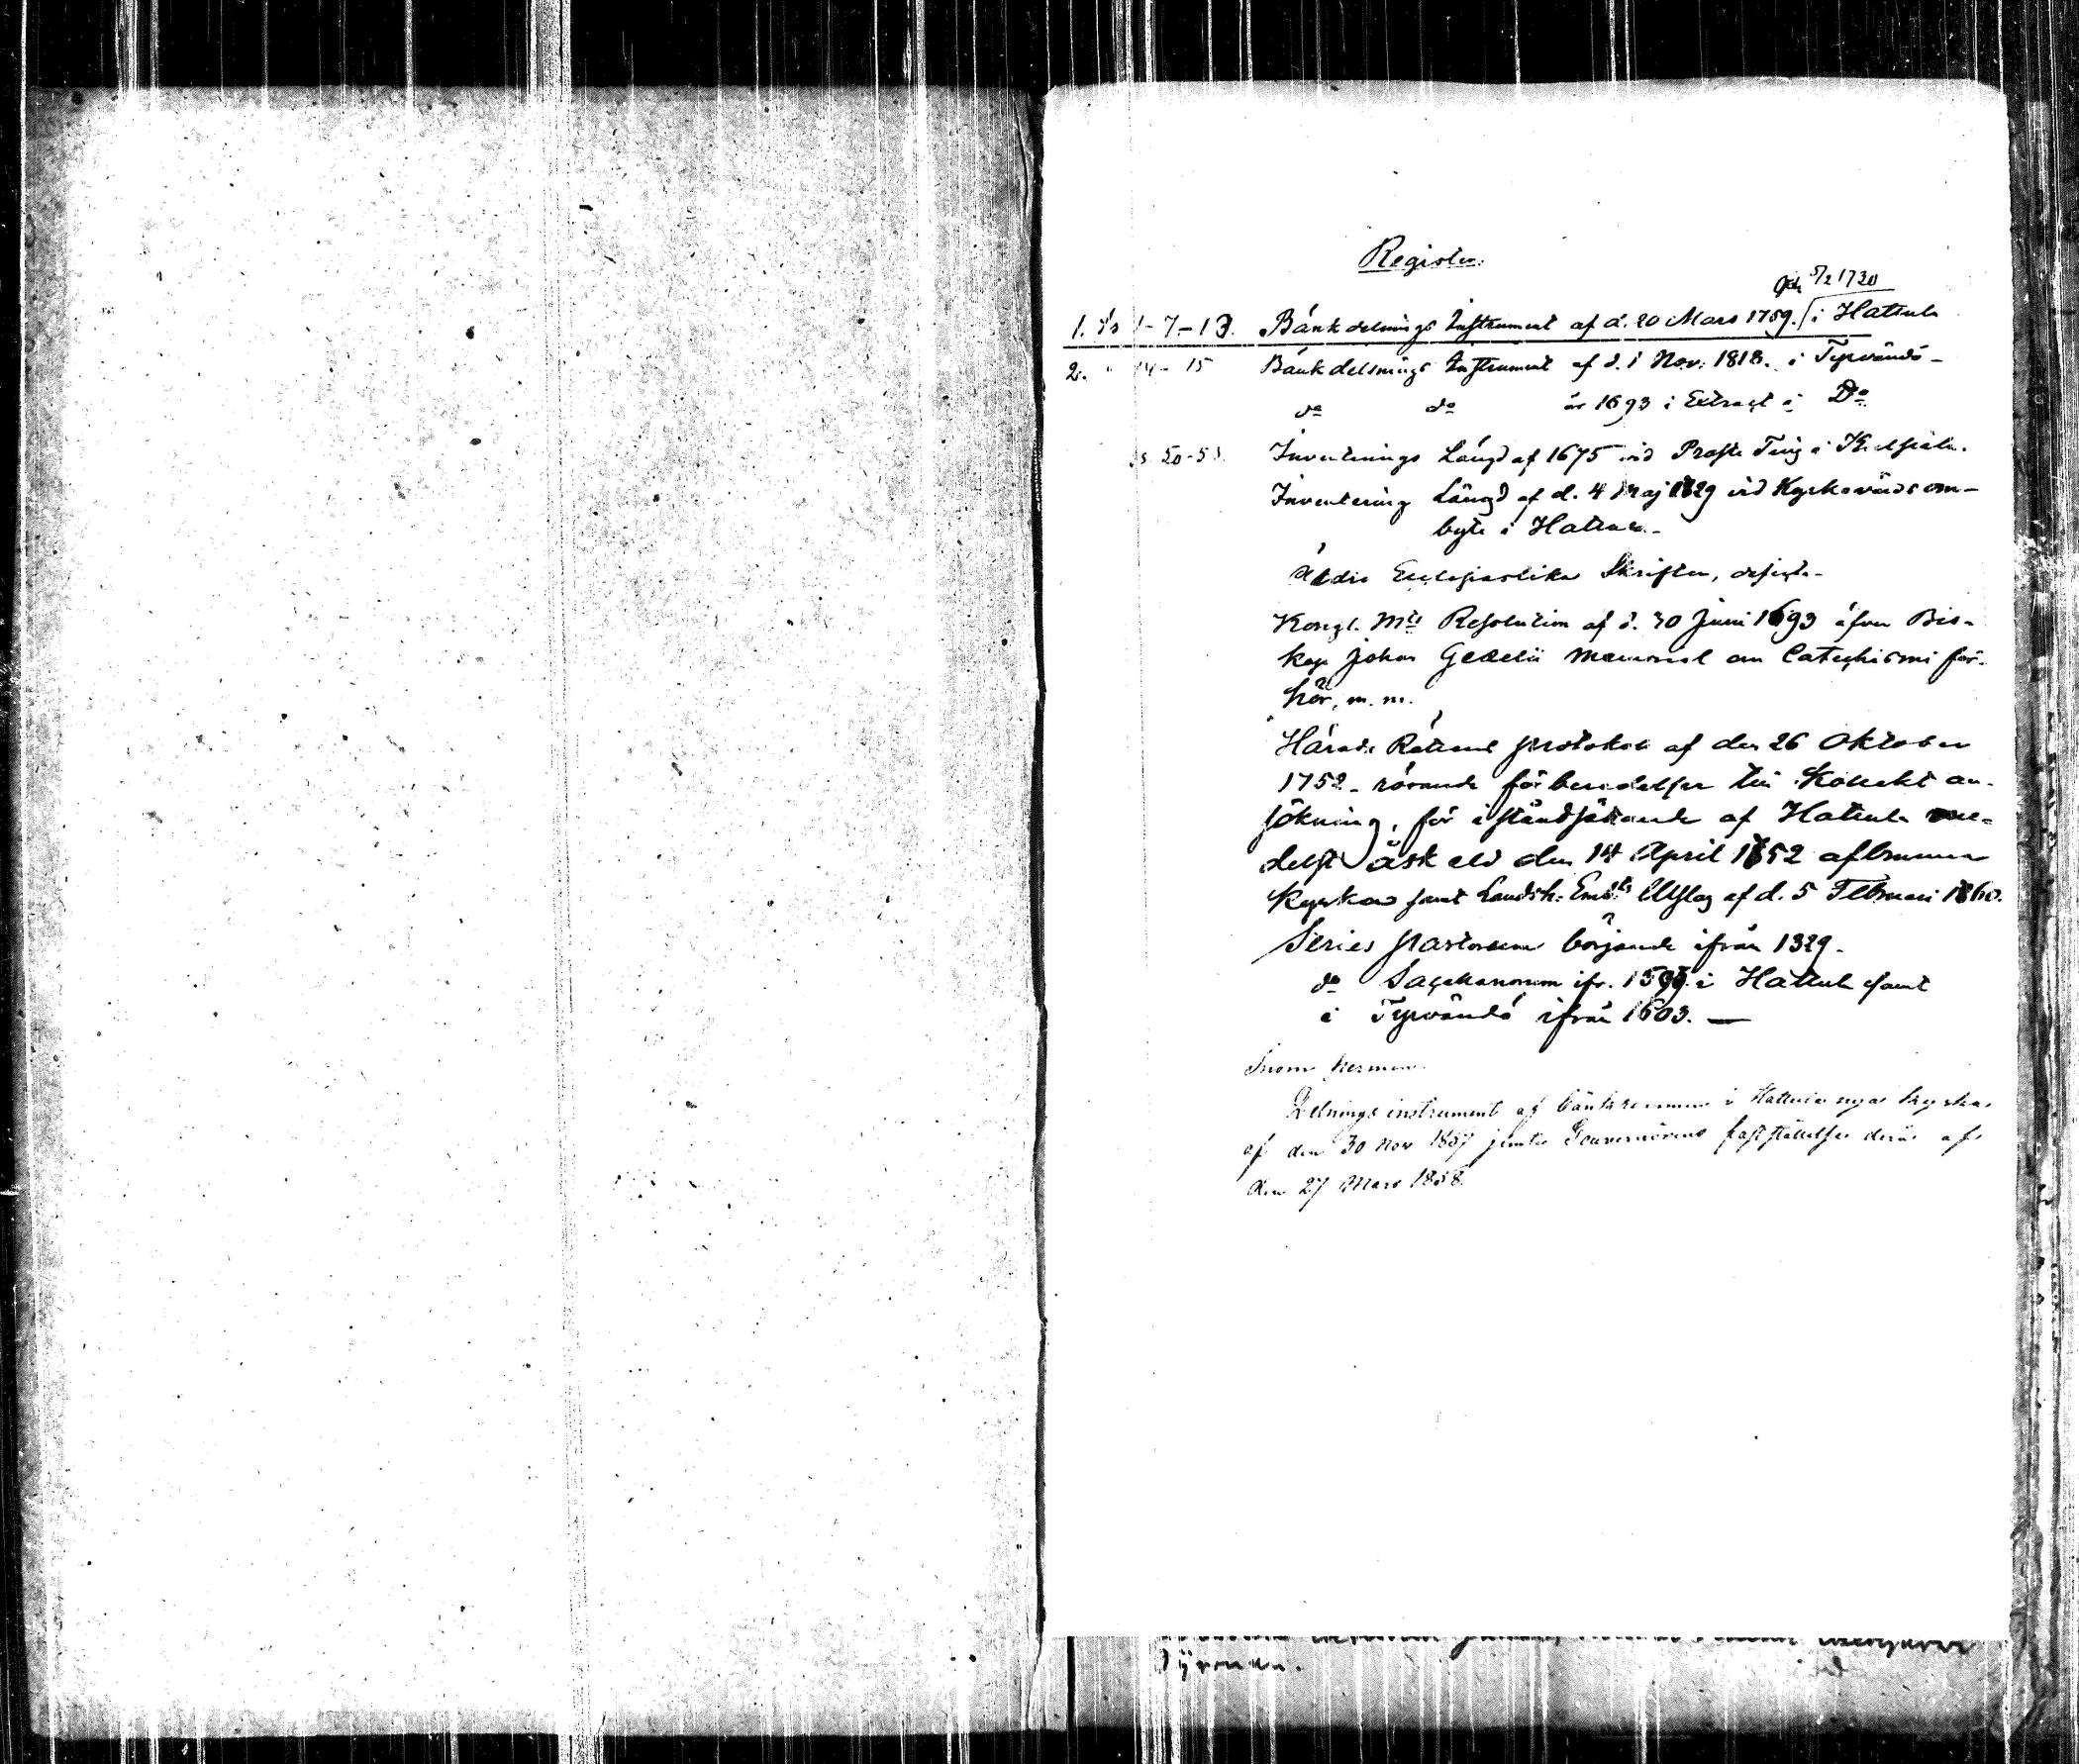 Register.
Och 5/2 1730
1. ss 1-7-13. Bänkdelnings Instrument af d. 20 Mars 1759. i Hattula
2. " 14-15 Bänkdelnings Instrument af d. 1 Nov. 1818. i Tyrvändö-
do do år 1693 i Extract i Do
ss. 50-53. Inventerings Längd af 1675 vid Proste Ting i
Inventering Längd af d. 4 Maj 1729 vid Kyrkovärds om-
byte i Hattula.-
Äldre Ecclesiastika Skrifter, defecta-
Kongl. Mts Resolution af d. 30 Juni 1693 öfver Bis-
kop Johan Gezelii Memorial om Catechismi för-
hör, m. m.
Härads Rättens protokoll af den 26 Oktober
1752- rörande förberedelser till Kollekt an-
sökning, för iståndsättande af Hattula me-
delst åsk eld den 14 April 1752 afbrunna
Kyrka samt Landsh. Embts Utslag af d. 5 Februari 1760.
Series pastorum började ifrån 1329-
do Sacellanorum ifr. i Hattula samt
i Tyrvändö ifrån 1603. —
Inom permen.
Delnings instrument af bänkrummen i Hattula nya kyrka
af den 30 Nov 1857 jemte Gouvernörens fastställelse derå af
den 27 Mars 1858.